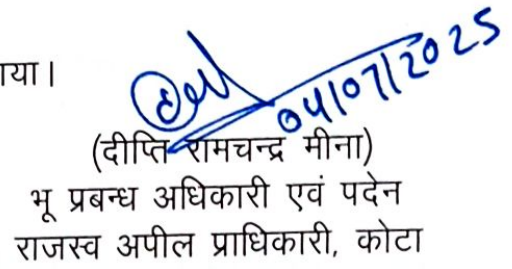 गया।
04/07/2025
(दीप्ति रामचन्द्र मीना)
भू प्रबन्ध अधिकारी एवं पदेन
राजस्व अपील प्राधिकारी, कोटा